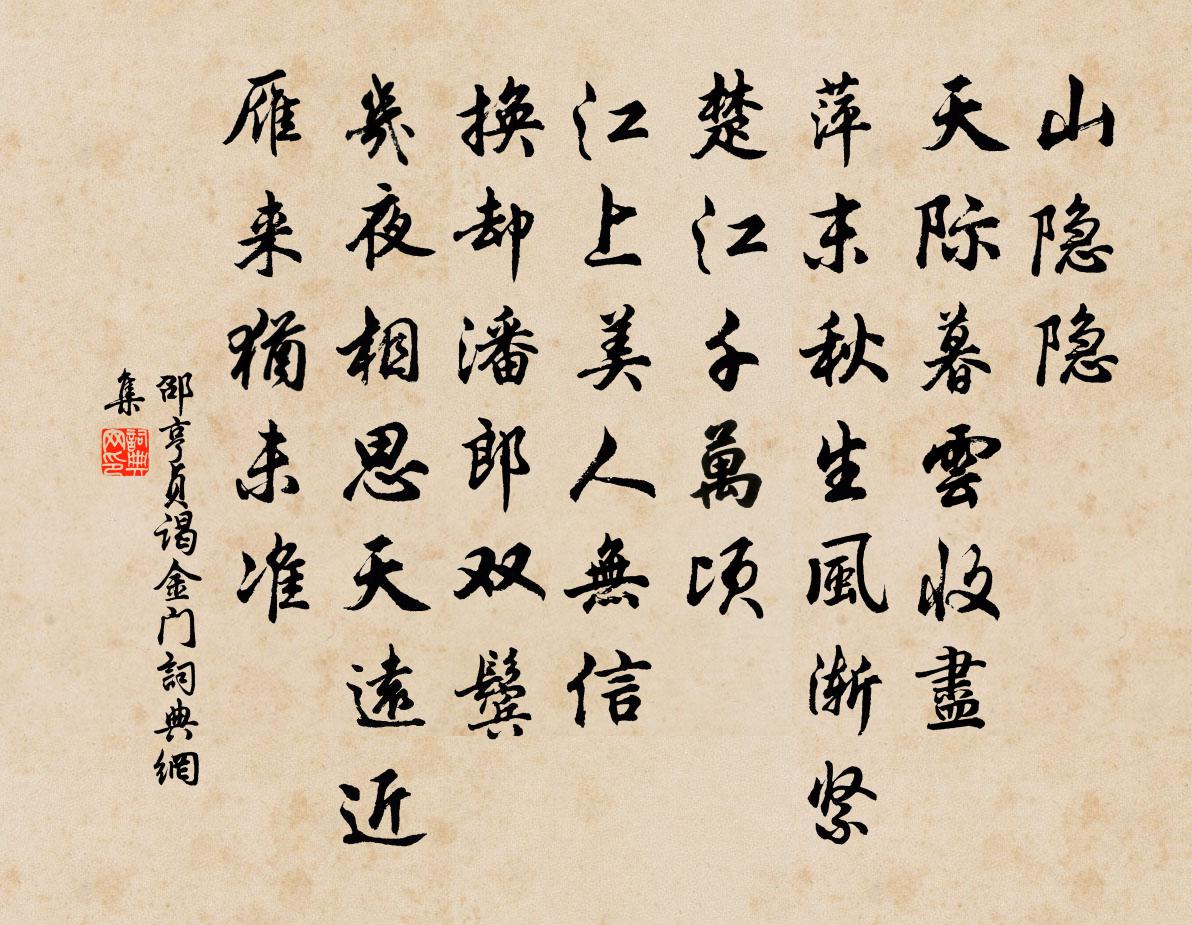 山隐隐
天际暮雲收盡
萍末秋生風渐紧
楚江千萬顷
江上美人無信
换却潘郎双鬓
幾夜相思天遠近
雁来猶未准
邵亨貞谒金门詞典網
集
詞典
网印